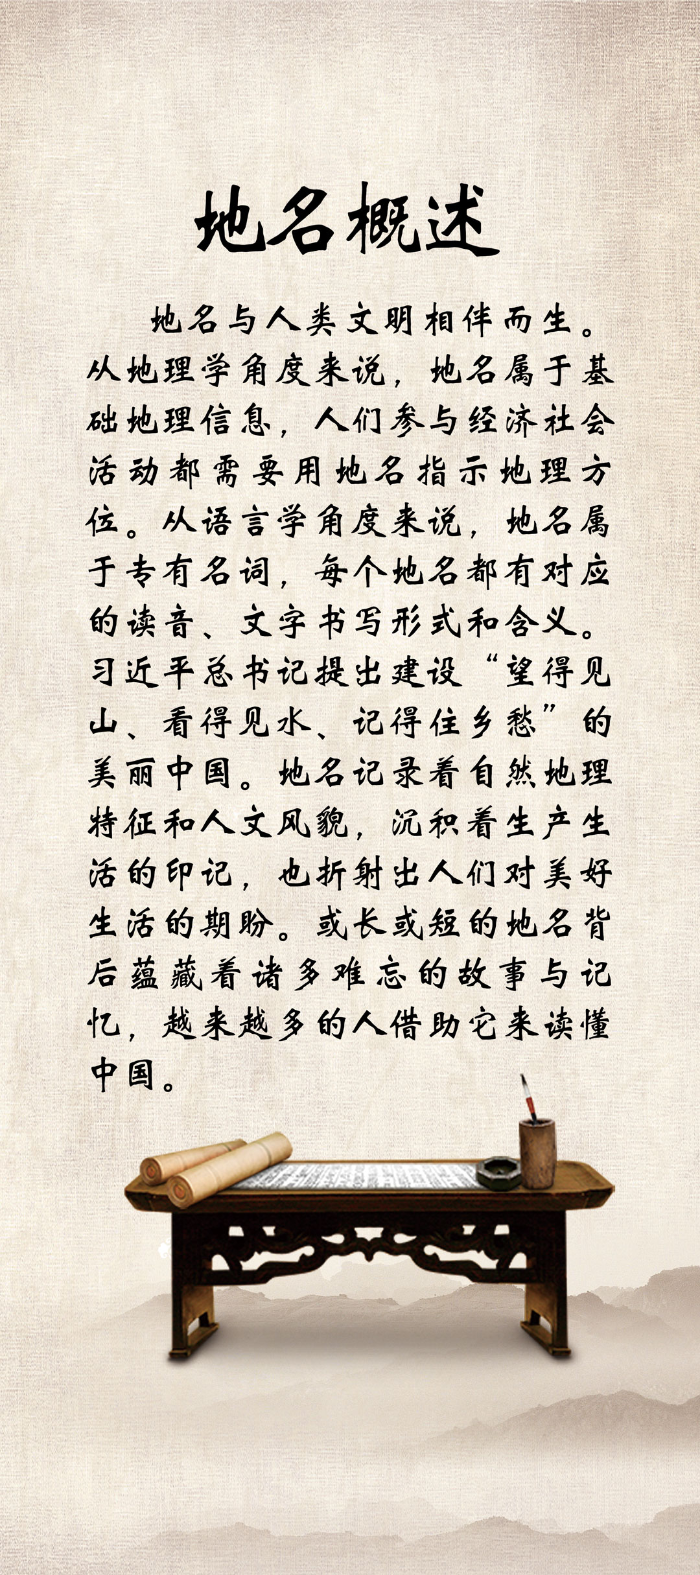 地名概述
地名与人类文明相伴而生。
从地理学角度来说，地名属于基
础地理信息，人们参与经济社会
活动都需要用地名指示地理方
位。从语言学角度来说，地名属
于专有名词，每个地名都有对应
的读音、文字书写形式和含义。
习近平总书记提出建设“望得见
山、看得见水、记得住乡愁”的
美丽中国。地名记录着自然地理
特征和人文风貌，沉积着生产生
活的印记，也折射出人们对美好
生活的期盼。或长或短的地名背
后蕴藏着诸多难忘的故事与记
忆，越来越多的人借助它来读懂
中国。